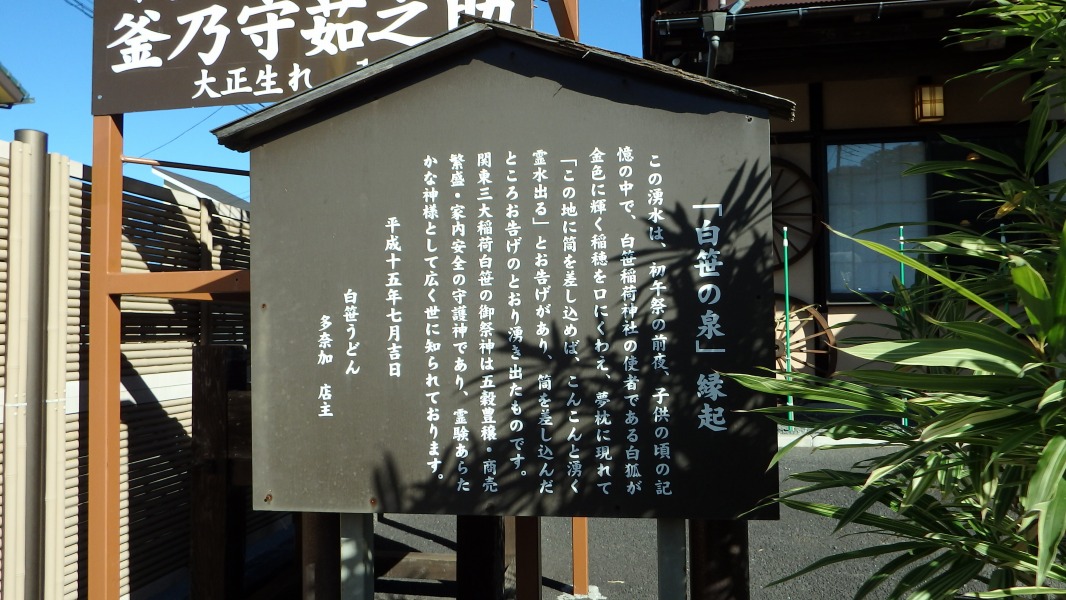 釜乃守茹之助
大正生れ
「白笹の泉」縁起
この湧水は、初午祭の前夜、子供の頃の記
憶の中で、白笹稲荷神社の使者である白狐が
金色に輝く稲穂を口にくわえ、夢枕に現れて
「この地に筒を差し込めば、こんこんと湧く
霊水出る」とお告げがあり、筒を差し込んだ
ところお告げのとおり湧き出たものです。
関東三大稲荷白笹の御祭神は五穀豊穣・商売
繁盛・家内安全の守護神であり、霊験あらた
かな神様として広く世に知られております。
平成十五年七月吉日
白笹うどん
多奈加 店主